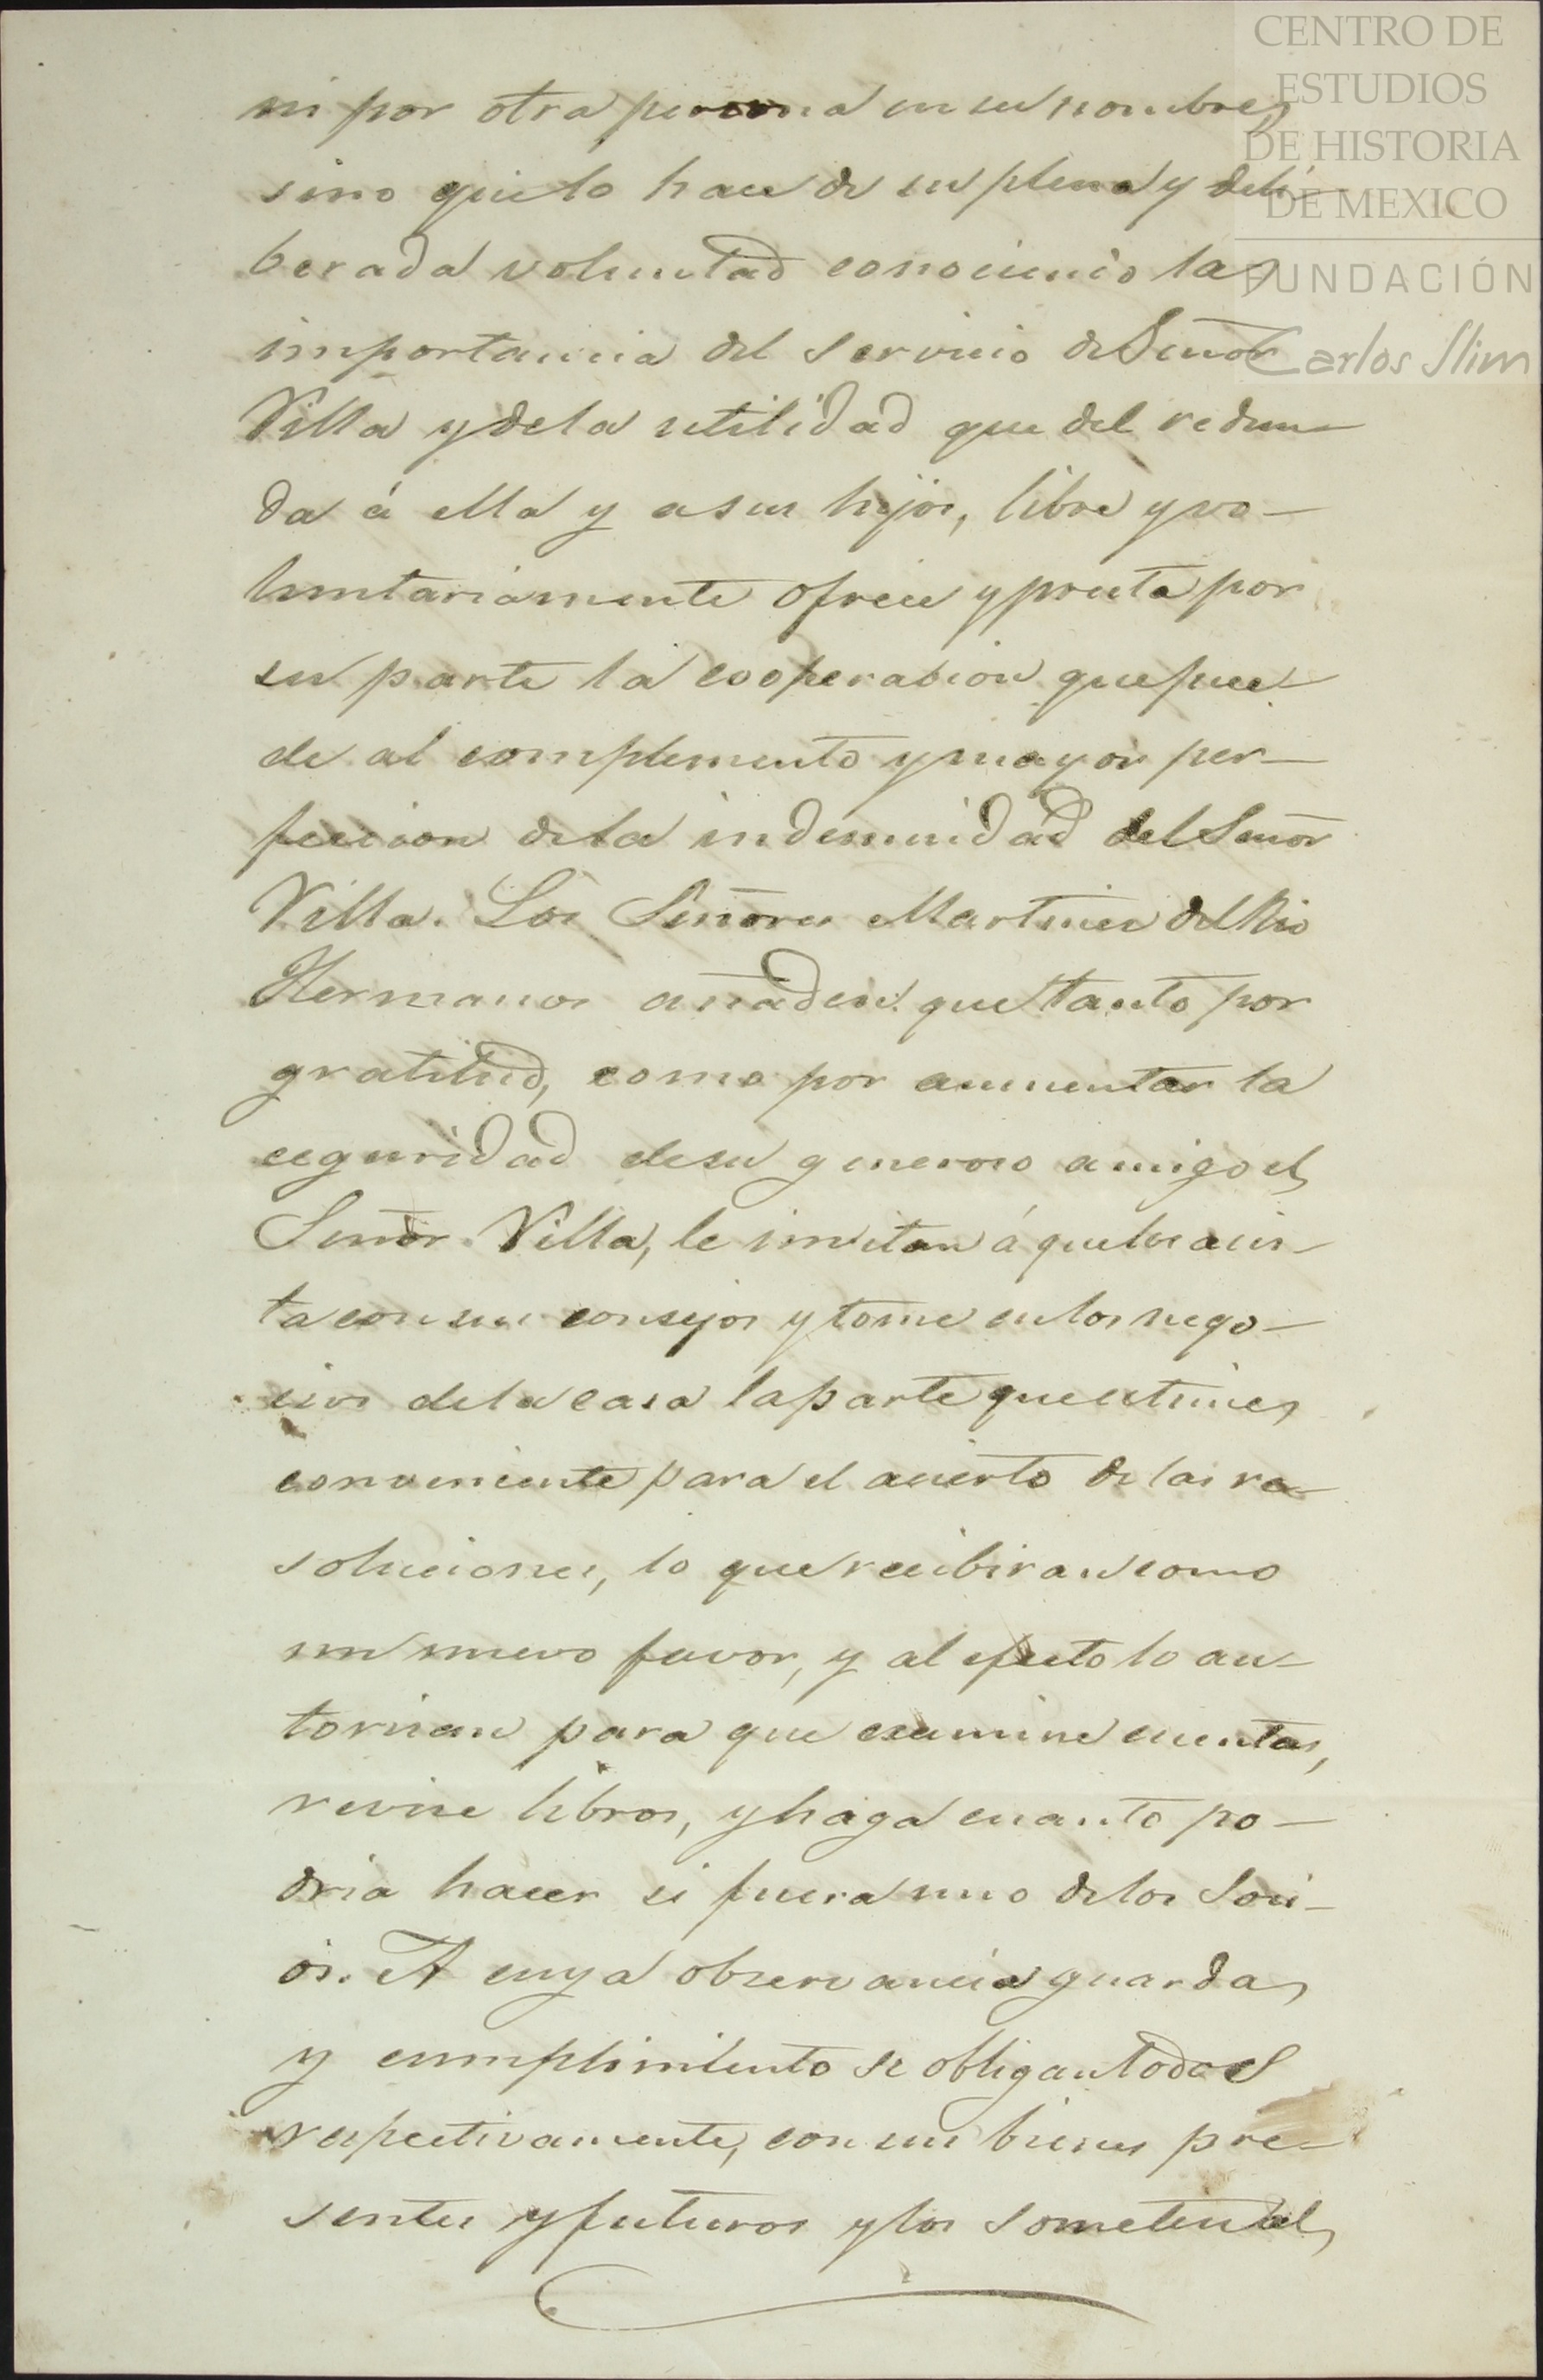 CENTRO DE
ESTUDIOS
DE HISTORIA
DE MEXICO
FUNDACIÓN
Carlos Slim
ni por otra persona en su nombre,
sino que lo hace de su plena y deli-
berada voluntad conociendo la
importancia del servicio del Señor
Villa y de la utilidad que del redun-
da á ella y a sus hijos, libre y vo-
luntariamente ofrece y presta por
su parte la cooperacion que pue-
de al complemento y mayor per-
feccion de la indemnidad del Señor
Villa. Los Señores Martinez del Rio
Hermanos añaden que tanto por
gratitud, como por aumentar la
seguridad de su generoso amigo el
Señor Villa, le invitan á que los asis-
ta con sus consejos y tome en los nego-
cios de la casa la parte que estime
conveniente para el acierto de las re-
soluciones, lo que recibiran como
un nuevo favor, y al efecto lo au-
torizan para que examine cuentas,
revise libros, y haga cuanto po-
dria hacer si fuera uno de los Soci-
os. A cuya observancia guarda
y cumplimiento se obligan todos
respectivamente, con sus bienes pre-
sentes y futuros y los someten al